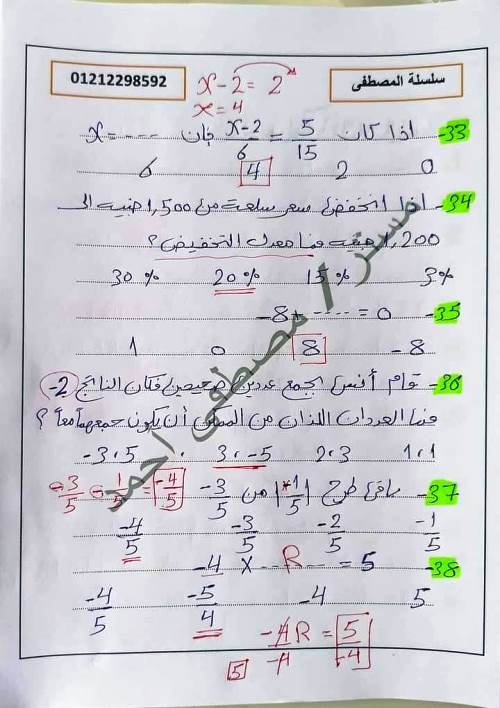 سلسلة المصطفى
01212298592
x - 2 = 2
x = 4
33- اذا كان x-2/6 = 5/15 فإن x = ----
0 2 4 6
34- اذا انخفض سعر سلعة من 1,500 جنيه الى
1,200 جنيه فما معدل التخفيض ؟
3% 15% 20% 30%
35- -8 + ---- = 0
-8 8 0 1
36- قام أنس بجمع عددين صحيحين فكان الناتج -2
فما العددان اللذان من الممكن أن يكون جمعهما معاً ؟
1،1 2،3 3،-5 -3،5
37- باقى طرح |1/5| من -3/5
-3/5 - 1/5 = -4/5
-1/5 -2/5 -3/5 -4/5
38- -4 × --R-- = 5
5 -4 -5/4 -4/5
-4R/-4 = 5/-4
5
مستر / مصطفى احمد